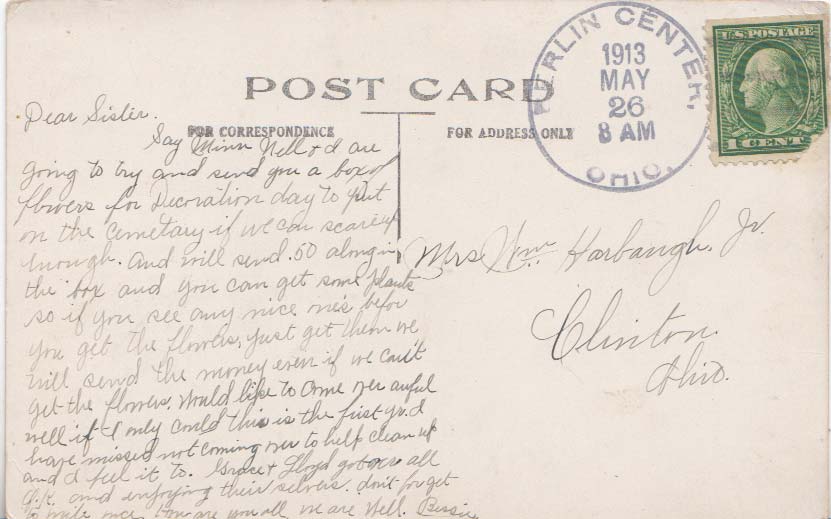 POST CARD
FOR CORRESPONDENCE
FOR ADDRESS ONLY
BERLIN CENTER,
1913
MAY
26
8 AM
OHIO.
U.S. POSTAGE
1 CENT
Dear Sister.
Say Minn Nell & I are
going to try and send you a box of
flowers for Decoration day to put
on the cemetary if we can scare up
enough. And will send .50 along in
the box and you can get some plants
so if you see any nice ones befor
you get the flowers, just get them we
will send the money even if we can't
get the flowers. Would like to come over awful
well if I only could this is the first yr. I
have missed not coming over to help clean up
and I feel it to. Grace & Lloyd got over all
O.K. and enjoying their selves. dont forget
to write once. how are you all we are well. Bessie
Mrs Wm Harbaugh, Jr.
Clinton.
Ohio.